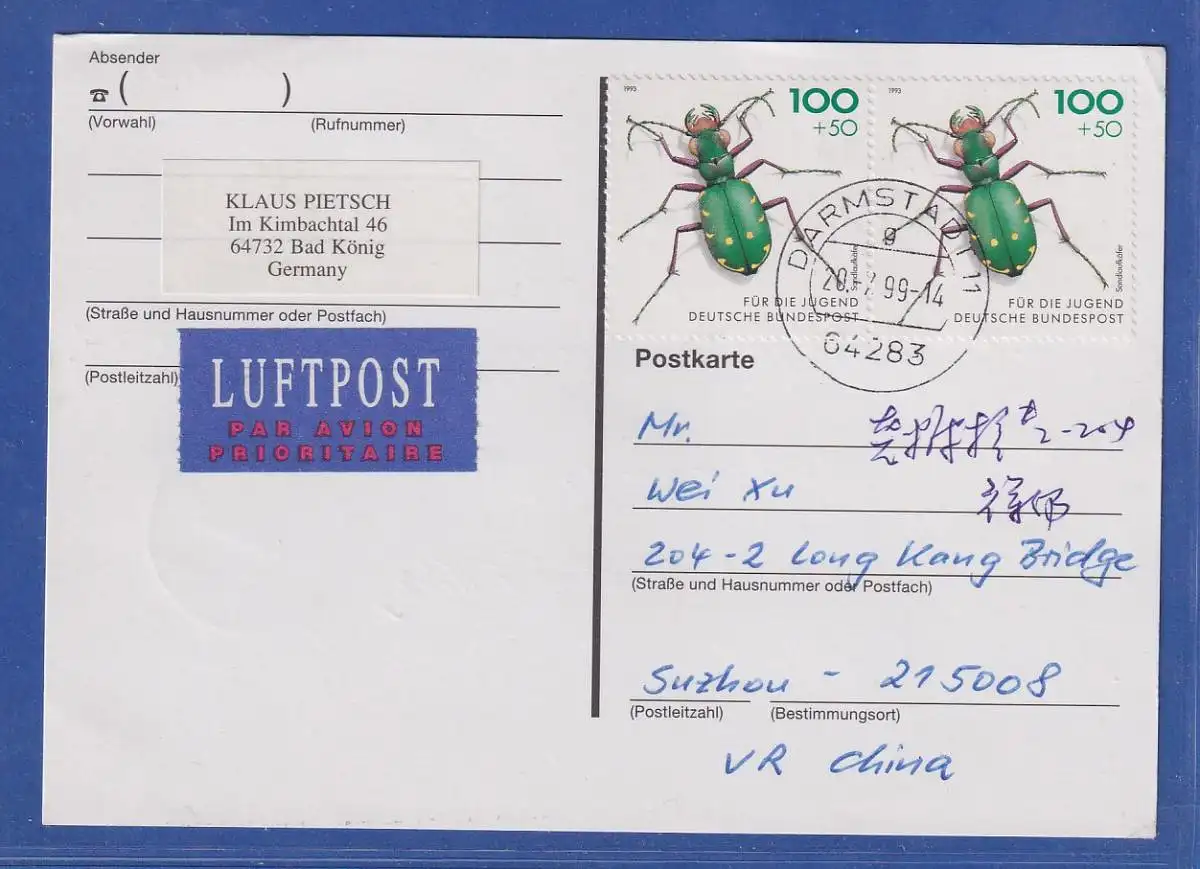 Absender
☎ ( )
(Vorwahl) (Rufnummer)
KLAUS PIETSCH
Im Kimbachtal 46
64732 Bad König
Germany
(Straße und Hausnummer oder Postfach)
(Postleitzahl)
LUFTPOST
PAR AVION
PRIORITAIRE
1993
100
+50
Sandlaufkäfer
FÜR DIE JUGEND
DEUTSCHE BUNDESPOST
1993
100
+50
Sandlaufkäfer
FÜR DIE JUGEND
DEUTSCHE BUNDESPOST
DARMSTADT 11
g
99-14
64283
Postkarte
Mr.
#2-204
Wei Xu
204-2 Long Kang Bridge
(Straße und Hausnummer oder Postfach)
Suzhou - 215008
(Postleitzahl) (Bestimmungsort)
VR China